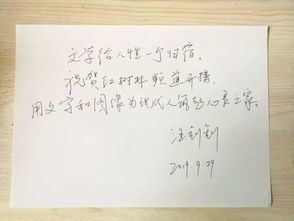 文学给人性一个归宿。
祝贺红树林频道开播，
用文字和图像为现代人筑起心灵之家。
汪剑钊
2019.9.29